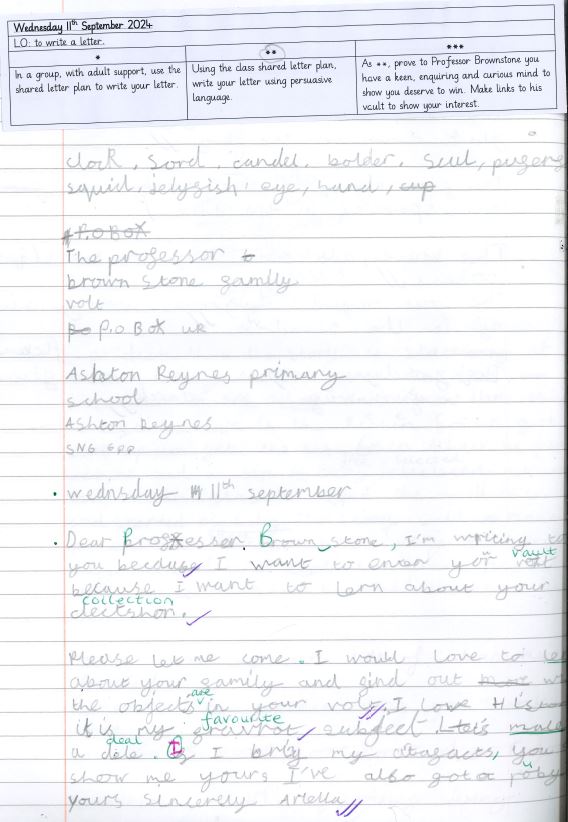 Wednesday 11th September 2024
LO: to write a letter.
*
In a group, with adult support, use the
shared letter plan to write your letter.
**
Using the class shared letter plan,
write your letter using persuasive
language.
***
As **, prove to Professor Brownstone you
have a keen, enquiring and curious mind to
show you deserve to win. Make links to his
vault to show your interest.
clock, Sord, candel, bolder, Scul,
squid, jelyfish, eye, hand, cup
P.O BOX
The professor
brown stone familly
volt
P.O BOX UK
Ashton Keynes primary
school
Ashton Keynes
SN6
wednsday 11th september
Dear Professer Brown stone, I'm writing to
you because I want to enter yor vault
because I want to lern about your
collection
Please let me come. I would Love to
about your family and find out
are
the objects in your volt. I Love
favourite
it is my subject. Let's make
deal
a dele. I bring my
show me yours I've also got a
yours sincerely Arlella